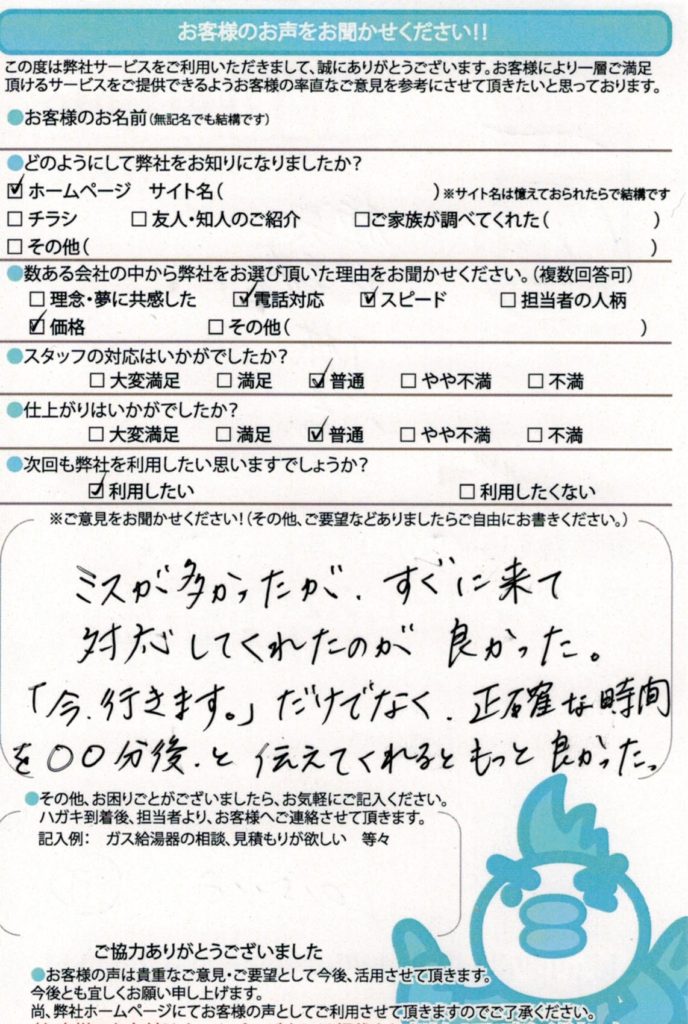 お客様のお声をお聞かせください!!
この度は弊社サービスをご利用いただきまして、誠にありがとうございます。お客様により一層ご満足
頂けるサービスをご提供できるようお客様の率直なご意見を参考にさせて頂きたいと思っております。
●お客様のお名前(無記名でも結構です)
●どのようにして弊社をお知りになりましたか?
☑ホームページ サイト名( )※サイト名は憶えておられたらで結構です
□チラシ □友人・知人のご紹介 □ご家族が調べてくれた( )
□その他( )
●数ある会社の中から弊社をお選び頂いた理由をお聞かせください。(複数回答可)
□理念・夢に共感した ☑電話対応 ☑スピード □担当者の人柄
☑価格 □その他( )
●スタッフの対応はいかがでしたか?
□大変満足 □満足 ☑普通 □やや不満 □不満
●仕上がりはいかがでしたか?
□大変満足 □満足 ☑普通 □やや不満 □不満
●次回も弊社を利用したい思いますでしょうか?
☑利用したい □利用したくない
※ご意見をお聞かせください!(その他、ご要望などありましたらご自由にお書きください。)
ミスが多かったが、すぐに来て
対応してくれたのが良かった。
「今、行きます。」だけでなく、正確な時間
を〇〇分後、と伝えてくれるともっと良かった。
●その他、お困りごとがございましたら、お気軽にご記入ください。
ハガキ到着後、担当者より、お客様へご連絡させて頂きます。
記入例: ガス給湯器の相談、見積もりが欲しい 等々
ご協力ありがとうございました
●お客様の声は貴重なご意見・ご要望として今後、活用させて頂きます。
今後とも宜しくお願い申し上げます。
尚、弊社ホームページにてお客様の声としてご利用させて頂きますのでご了承ください。